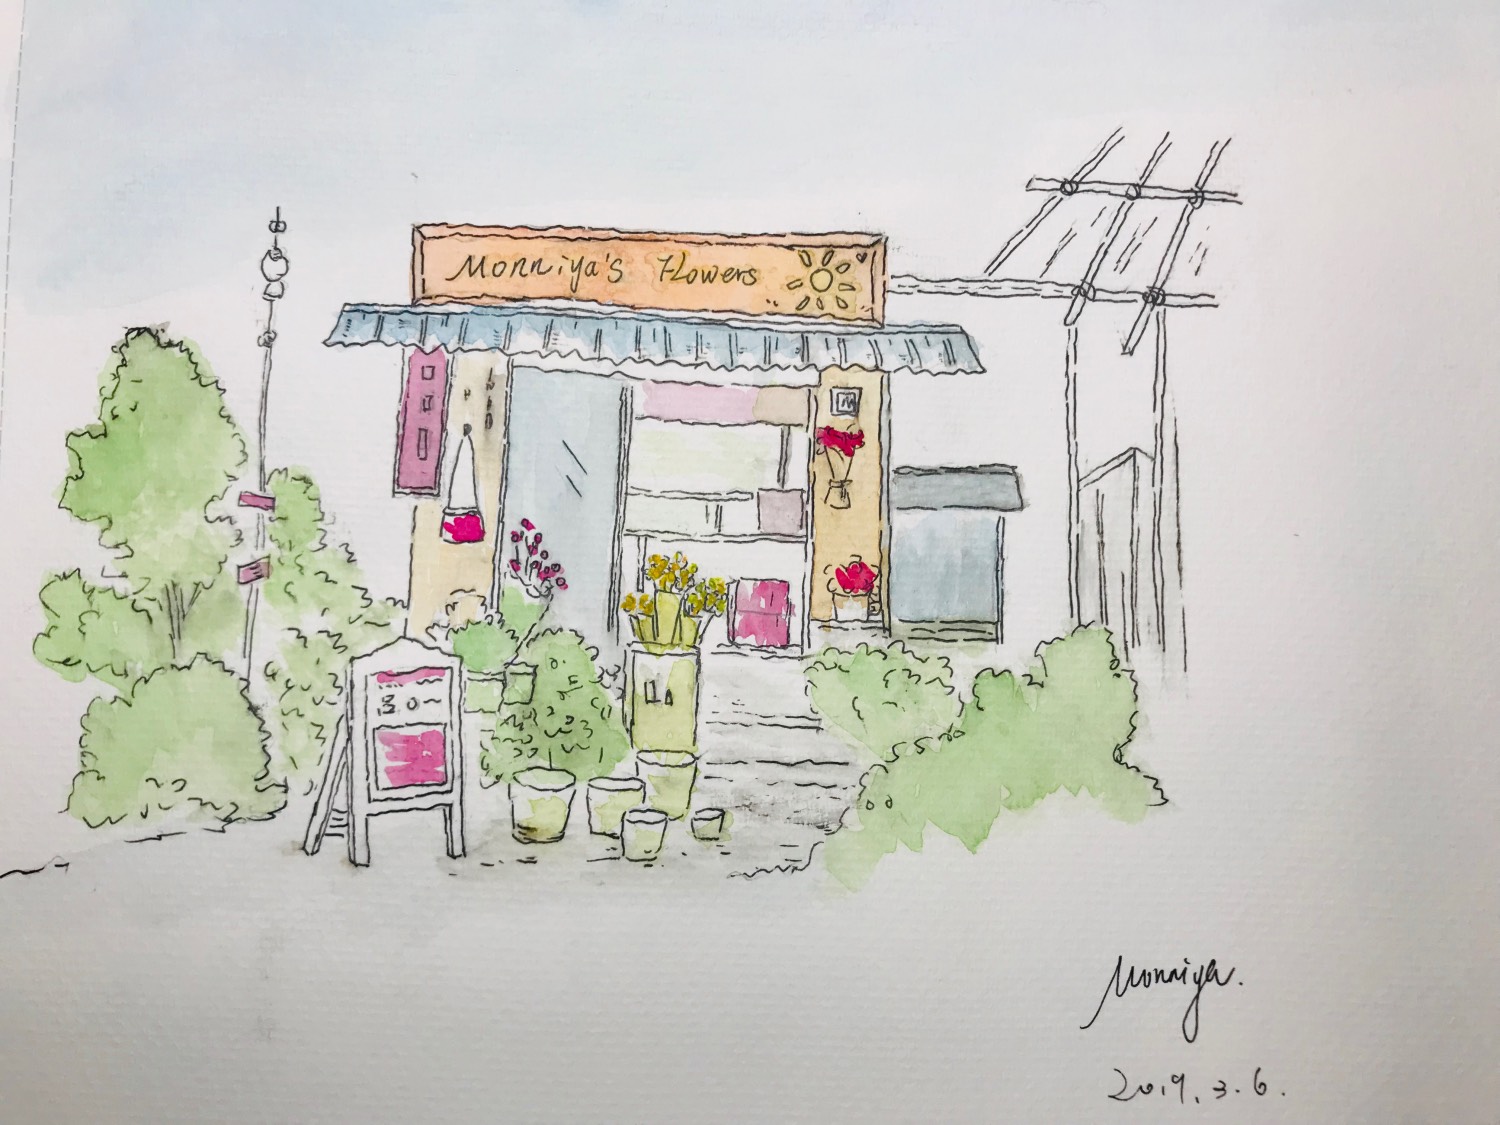 Monniya's Flowers
Monniya.
2019.3.6.